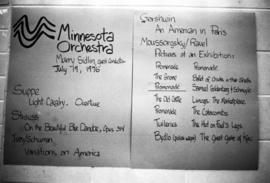 Minnesota
Orchestra
Murry Sidlin, guest conductor
July 19, 1976
Suppe
Light Cavalry, Overture
Strauss
On the Beautiful Blue Danube, Opus 314
Ives/Schuman
Variations on America
Gershwin
An American in Paris
Moussorgsky/Ravel
Pictures at an Exhibition:
Promenade
The Gnome
Promenade
The Old Castle
Promenade
Tuileries
Bydlo (polish wagon)
Promenade
Ballet of Chicks in their Shells
Samuel Goldenberg & Schmuyle
Limoges, The Marketplace
The Catacombs
The Hut on Fowl's Legs
The Great Gate of Kiev